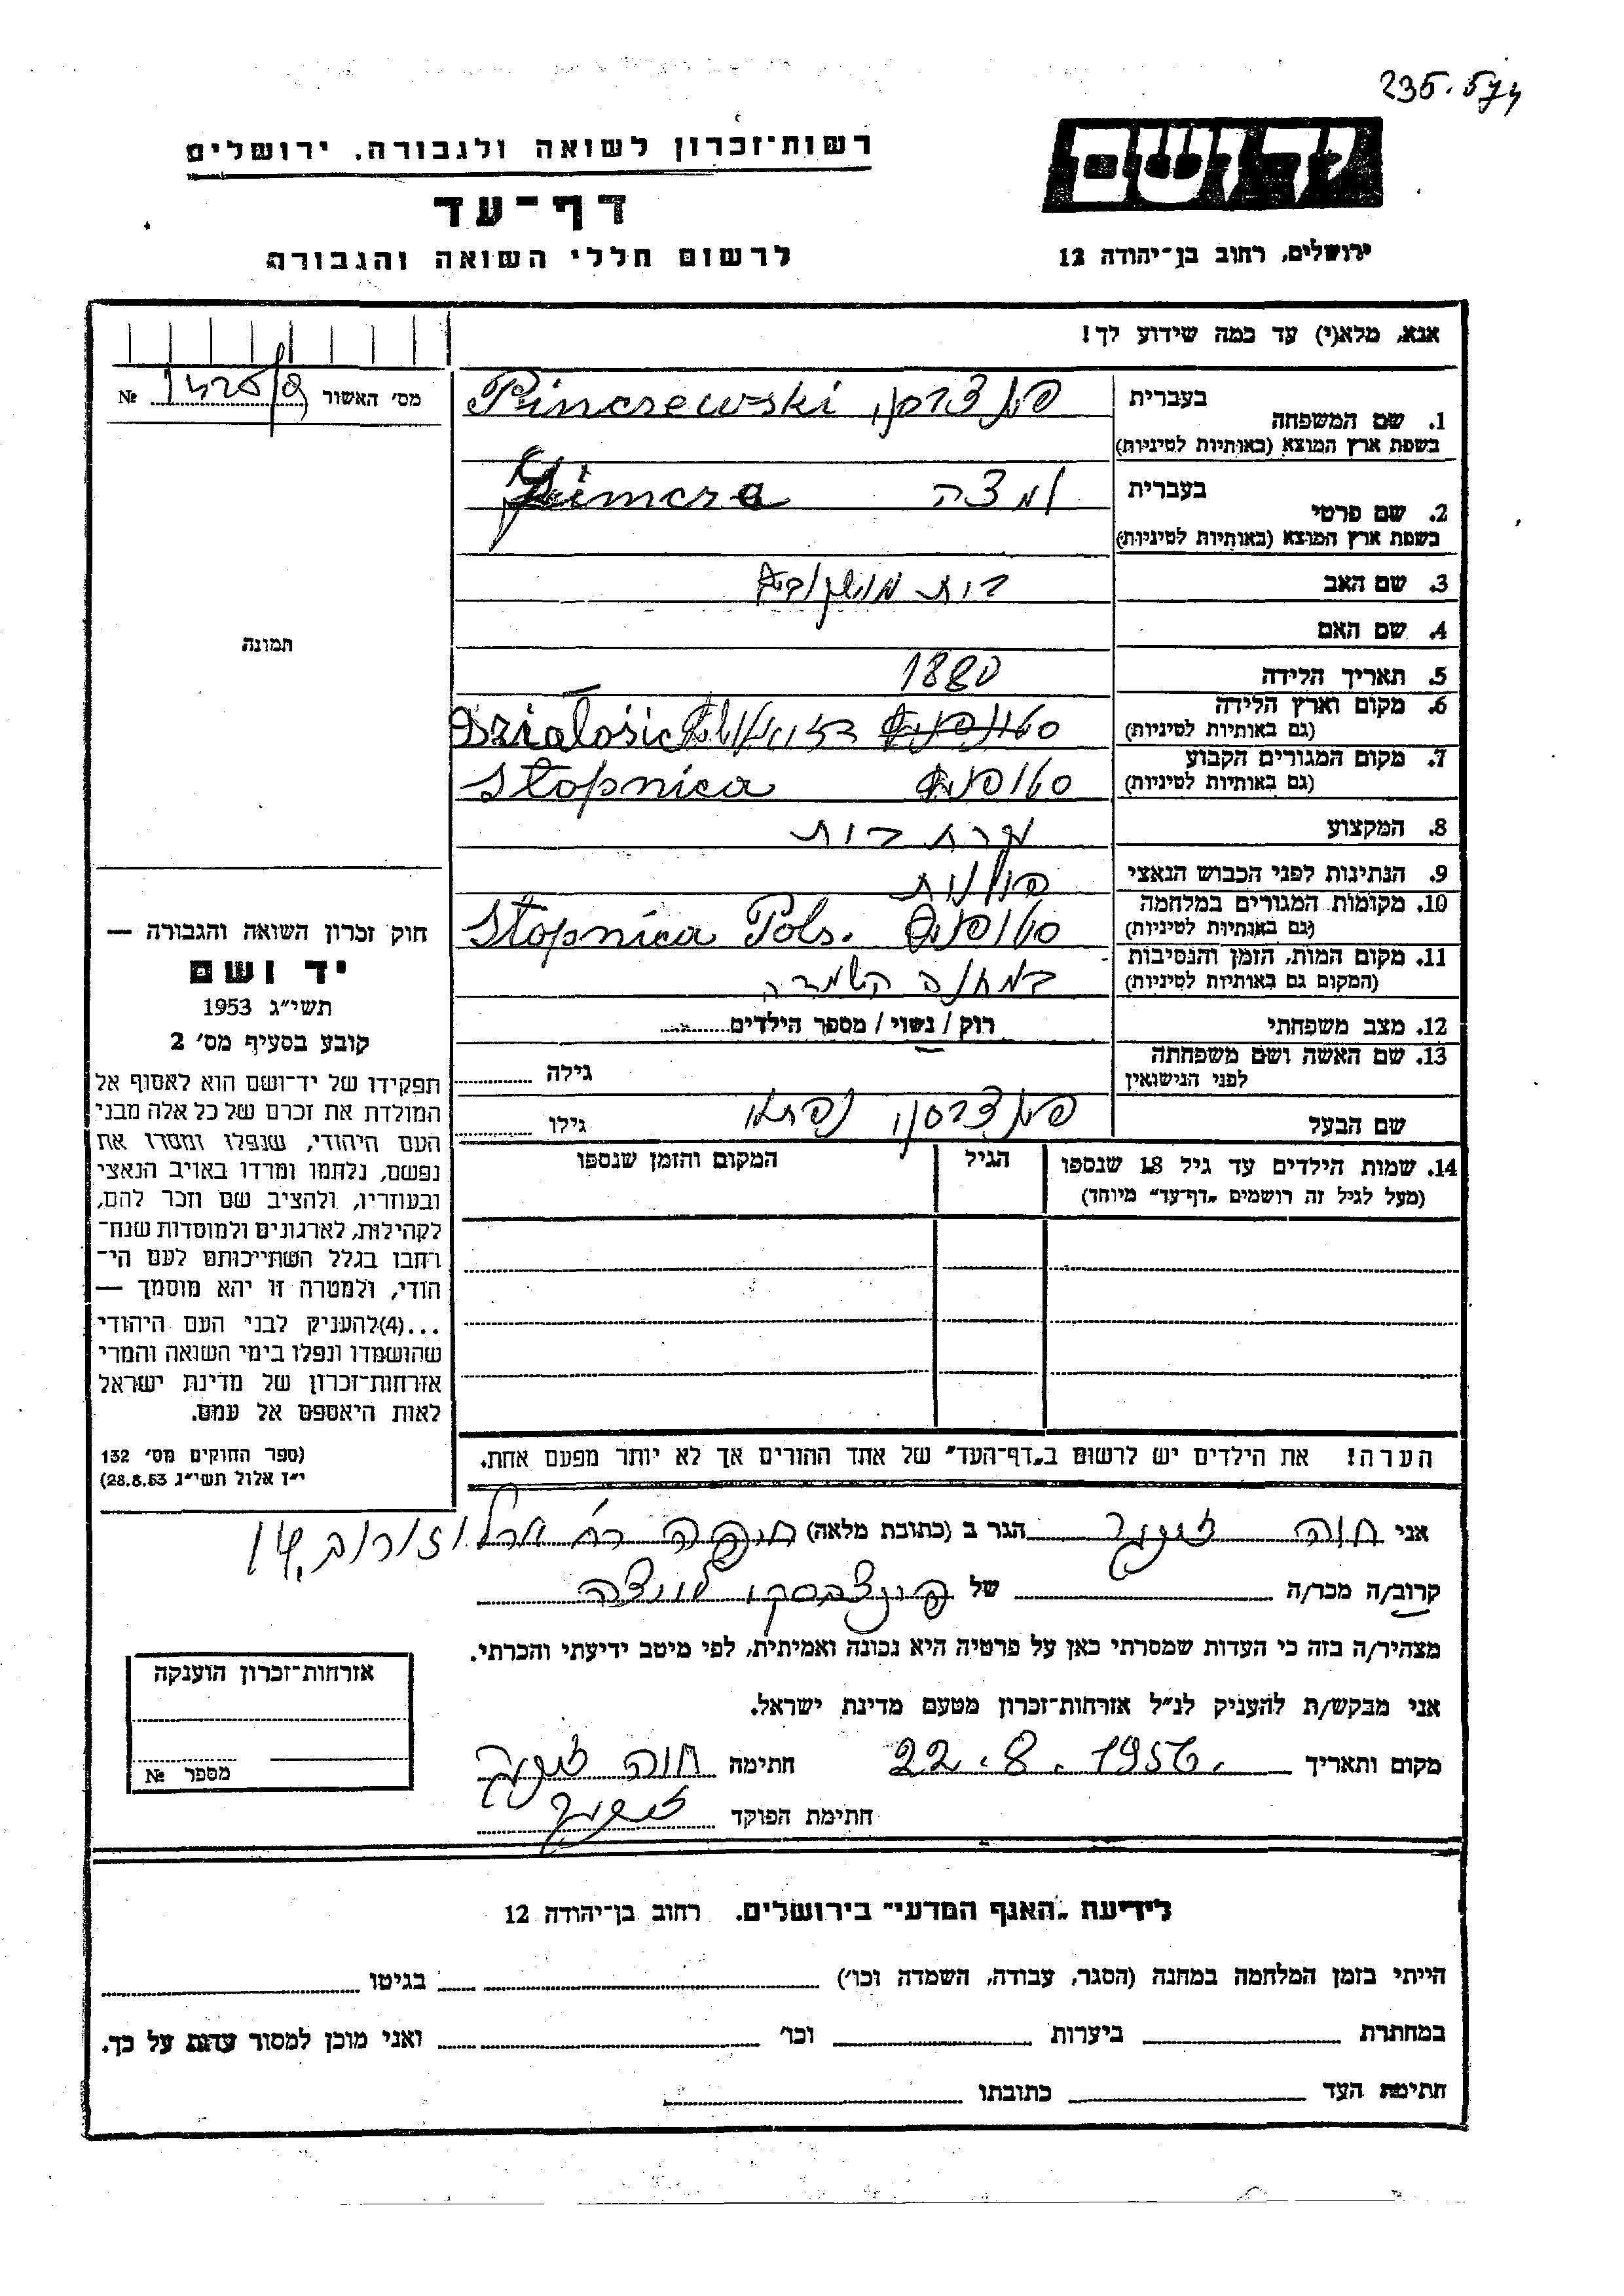 235.574
יד ושם
רשות־זכרון לשואה ולגבורה. ירושלים
דף־עד
לרשום חללי השואה והגבורה
ירושלים, רחוב בן־יהודה 12
אנא, מלא(י) עד כמה שידוע לך!
מס׳ האשור № 1425/9
בעברית
1. שם המשפחה
בשפת ארץ המוצא (באותיות לטיניות)
Pinczewski
בעברית
2. שם פרטי
בשפת ארץ המוצא (באותיות לטיניות)
3. שם האב
בית
4. שם האם
5. תאריך הלידה 1880
6. מקום וארץ הלידה
(גם באותיות לטיניות)
7. מקום המגורים הקבוע
(גם באותיות לטיניות)
סטופניץ Stopnica
8. המקצוע
עקרת בית
9. הנתינות לפני הכבוש הנאצי
פולנית
10. מקומות המגורים במלחמה
(גם באותיות לטיניות)
סטופניץ Stopnica Pols.
11. מקום המות, הזמן והנסיבות
(המקום גם באותיות לטיניות)
במחנה השמדה
12. מצב משפחתי
רוק / נשוי / מספר הילדים
13. שם האשה ושם משפחתה
לפני הנישואין
גילה
שם הבעל
פינצבסקי נפתלי
גילו
14. שמות הילדים עד גיל 18 שנספו
(מעל לגיל זה רושמים „דף־עד״ מיוחד)
הגיל
המקום והזמן שנספו
הערה! את הילדים יש לרשום ב„דף־העד״ של אחד ההורים אך לא יותר מפעם אחת.
תמונה
חוק זכרון השואה והגבורה —
יד ושם
תשי״ג 1953
קובע בסעיף מס׳ 2
תפקידו של יד־ושם הוא לאסוף אל
המולדת את זכרם של כל אלה מבני
העם היהודי, שנפלו ומסרו את
נפשם, נלחמו ומרדו באויב הנאצי
ובעוזריו, ולהציב שם וזכר להם,
לקהילות, לארגונים ולמוסדות שנח־
רחבו בגלל השתייכותם לעם הי־
הודי, ולמטרה זו יהא מוסמך —
...(4)להעניק לבני העם היהודי
שהושמדו ונפלו בימי השואה והמרי
אזרחות־זכרון של מדינת ישראל
לאות היאספם אל עמם.
(ספר החוקים מס׳ 132
י״ז אלול תשי״ג 28.8.53)
אני חוה הגר ב (כתובת מלאה) חיפה רח׳ ארלוזורוב
קרוב/ה מכר/ה של
מצהיר/ה בזה כי העדות שמסרתי כאן על פרטיה היא נכונה ואמיתית, לפי מיטב ידיעתי והכרתי.
אני מבקש/ת להעניק לנ״ל אזרחות־זכרון מטעם מדינת ישראל.
מקום ותאריך 22.8.1956. חתימה חוה
חתימת הפוקד
אזרחות־זכרון הוענקה
מספר №
לידיעת „האגף המדעי״ בירושלים. רחוב בן־יהודה 12
הייתי בזמן המלחמה במחנה (הסגר, עבודה, השמדה וכו׳) בגיטו
במחתרת ביערות וכו׳ ואני מוכן למסור עדות על כך.
חתימת העד כתובתו